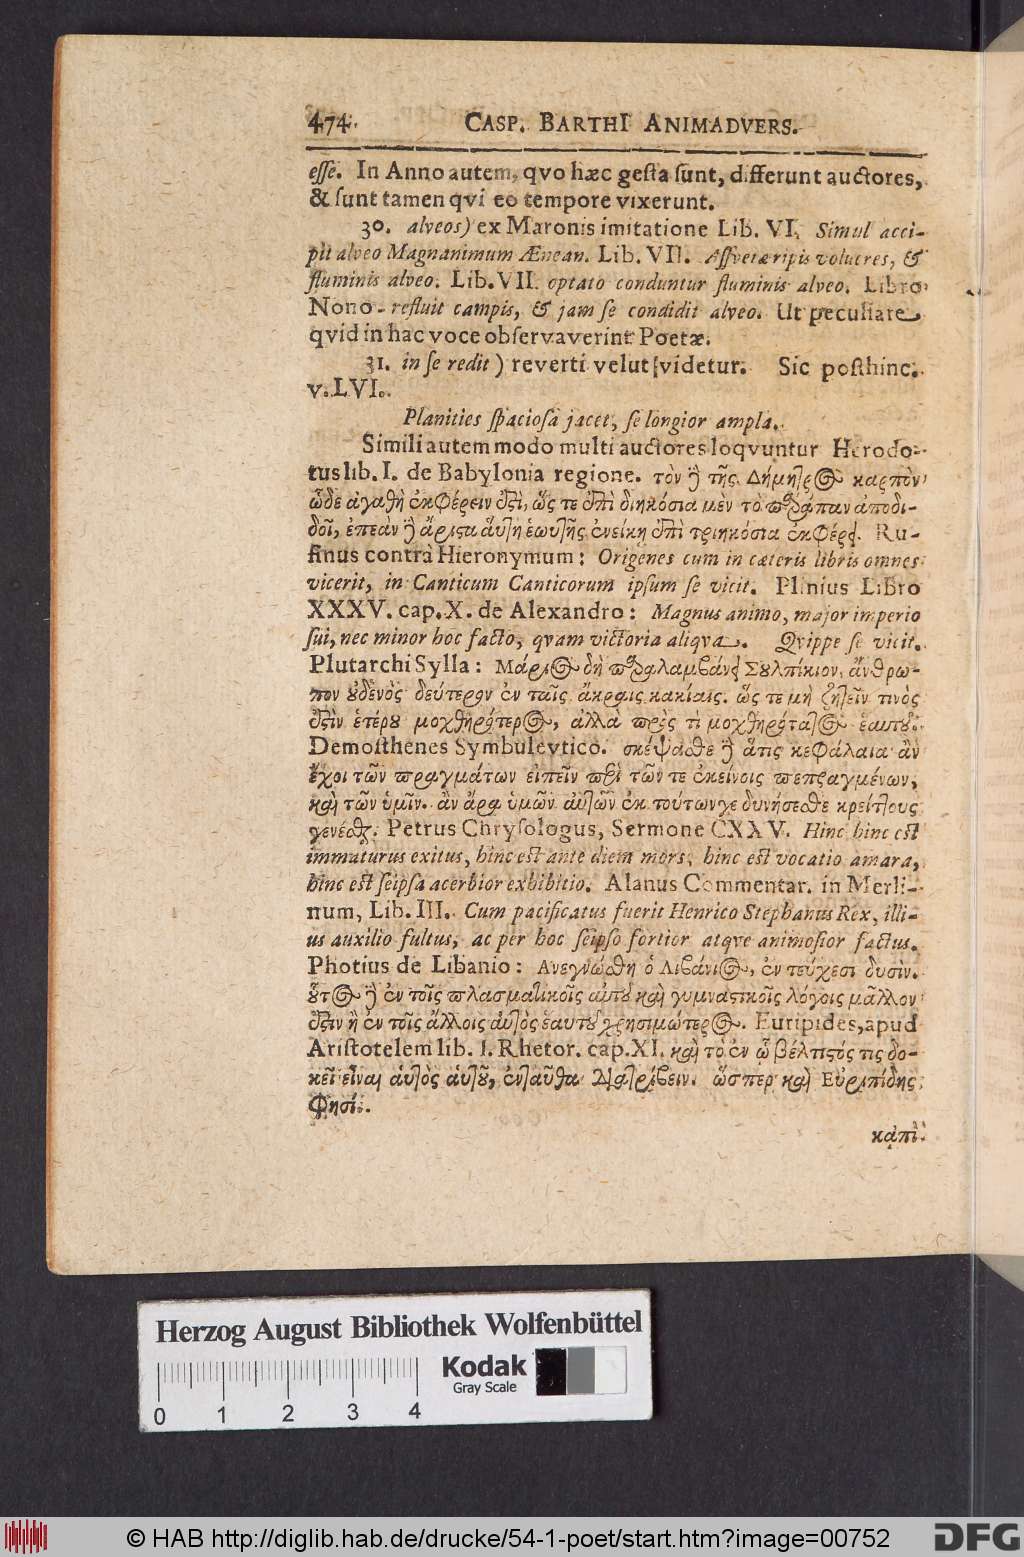 474. CASP. BARTHI ANIMADVERS.
esse. In Anno autem, qvo hæc gesta sunt, differunt auctores,
& sunt tamen qvi eo tempore vixerunt.
30. alveos) ex Maronis imitatione Lib. VI. Simul acci-
pit alveo Magnanimum Ænean. Lib. VII. Assvetæ ripis volucres, &
fluminis alveo. Lib. VII. optato conduntur fluminis alveo. Libro
Nono - refluit campis, & jam se condidit alveo. Ut peculiare
qvid in hac voce observaverint Poetæ.
31. in se redit) reverti velut videtur. Sic posthinc.
v. LVI.
Planities spaciosa jacet, se longior ampla.
Simili autem modo multi auctores loqvuntur Herodo-
tus lib. I. de Babylonia regione. τὸν ἢ τῆς Δήμητρος καρπὸν
ὧδε ἀγαθὴ ἐκφέρειν ἐστὶ, ὥς τε ἐπὶ διηκόσια μὲν τὸ παράπαν ἀποδι-
δοῖ, ἐπεὰν ἢ ἄριστα αὐτὴ ἑωυτῆς ἐνείκη ἐπὶ τριηκόσια ἐκφέρει. Ru-
finus contra Hieronymum: Origenes cum in cæteris libris omnes
vicerit, in Canticum Canticorum ipsum se vicit. Plinius Libro
XXXV. cap. X. de Alexandro: Magnus animo, major imperio
sui, nec minor hoc facto, qvam victoria aliqva. Qvippe se vicit.
Plutarchi Sylla: Μάριος δὴ παραλαμβάνει Σουλπίκιον, ἄνθρω-
πον οὐδενὸς δεύτερον ἐν ταῖς ἄκραις κακίαις. ὥς τε μὴ ζητεῖν τινὸς
ἐστὶν ἑτέρου μοχθηρότερος, ἀλλὰ πρὸς τὶ μοχθηρότατος ἑαυτοῦ.
Demosthenes Symbulevtico. σκέψασθε ἢ ἅτις κεφάλαια ἂν
ἔχοι τῶν πραγμάτων εἰπεῖν περὶ τῶν τε ἐκείνοις πεπραγμένων,
καὶ τῶν ὑμῖν. ἂν ἄρα ὑμῶν αὐτῶν ἐκ τούτων γε δυνήσεσθε κρείττους
γενέσθαι. Petrus Chrysologus, Sermone CXXV. Hinc hinc est
immaturus exitus, hinc est ante diem mors, hinc est vocatio amara,
hinc est seipsa acerbior exhibitio. Alanus Commentar. in Merli-
num, Lib. III. Cum pacificatus fuerit Henrico Stephanus Rex, illi-
us auxilio fultus, ac per hoc seipso fortior atqve animosior factus.
Photius de Libanio: Ἀνεγνώσθη ὁ Λιβάνιος, ἐν τεύχεσι δυσὶν.
οὗτος ἢ ἐν τοῖς πλασματικοῖς αὐτοῦ καὶ γυμναστικοῖς λόγοις μᾶλλον
ἐστιν ἢ ἐν τοῖς ἄλλοις αὐτὸς ἑαυτοῦ χρησιμώτερος. Euripides, apud
Aristotelem lib. I. Rhetor. cap. XI. καὶ τὸ ἐν ᾧ βέλτιστός τις δο-
κεῖ εἶναι αὐτὸς αὑτοῦ, ἐνταῦθα διατρίβειν. ὥσπερ καὶ Εὐριπίδης
φησί.
κᾀπὶ
Herzog August Bibliothek Wolfenbüttel
Kodak
Gray Scale
0 1 2 3 4
© HAB http://diglib.hab.de/drucke/54-1-poet/start.htm?image=00752
DFG